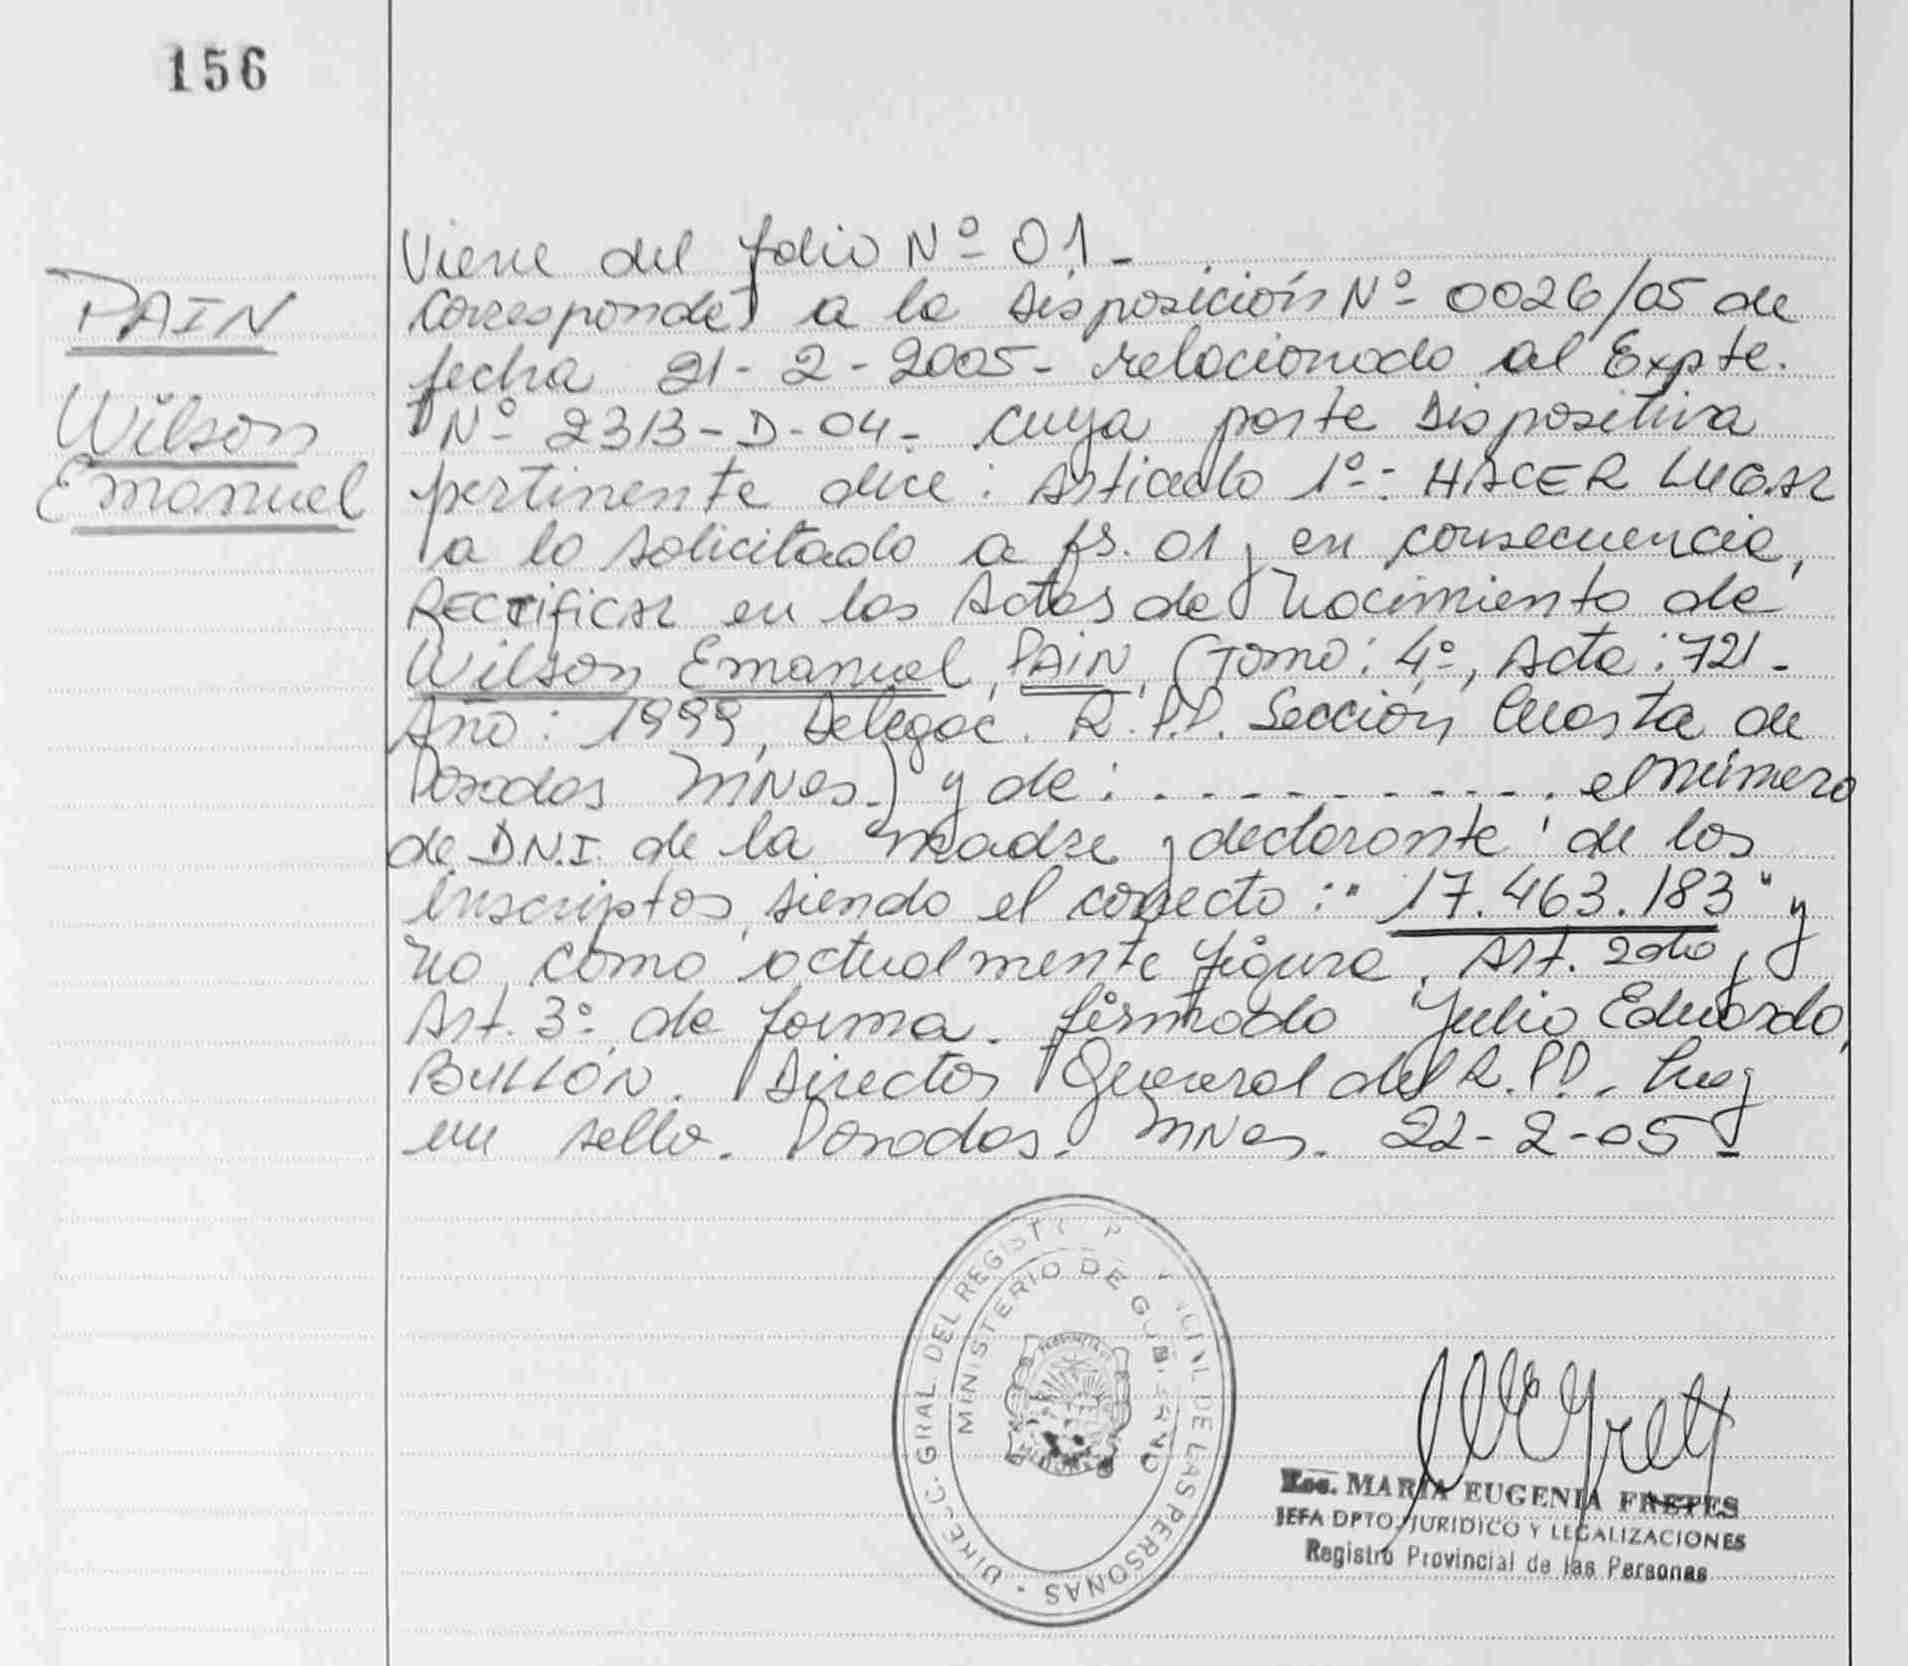 156
PAIN
Wilson
Emanuel
Viene del folio Nº 01 -
Corresponde a la Disposición Nº 0026/05 de
fecha 21-2-2005- relacionado al Expte.
Nº 2313-D-04- cuya parte Dispositiva
pertinente dice: Artículo 1º-: HACER LUGAR
a lo solicitado a fs. 01 y en consecuencia,
RECTIFICAR en las Actas de Nacimiento de
Wilson Emanuel, PAIN, (Tomo: 4º, Acta: 721-
Año: 1999, Delegac. R.P.P. Sección Cuarta de
Posadas Mnes.) y de: . - - - - - - - - - . el número
de D.N.I. de la madre y declarante de los
inscriptos, siendo el correcto: "17.463.183" y
no como actualmente figura. Art. 2do y
Art. 3º de forma. firmado Julio Eduardo,
BULLÓN. Director General del R.P.P. hay
un sello. Posadas. Mnes. 22-2-05-
DIREC. GRAL. DEL REGISTRO PROVINCIAL DE LAS PERSONAS
MINISTERIO DE GOBIERNO
PROVINCIA DE
MISIONES
MARIA EUGENIA FRETES
JEFA DPTO. JURIDICO Y LEGALIZACIONES
Registro Provincial de las Personas